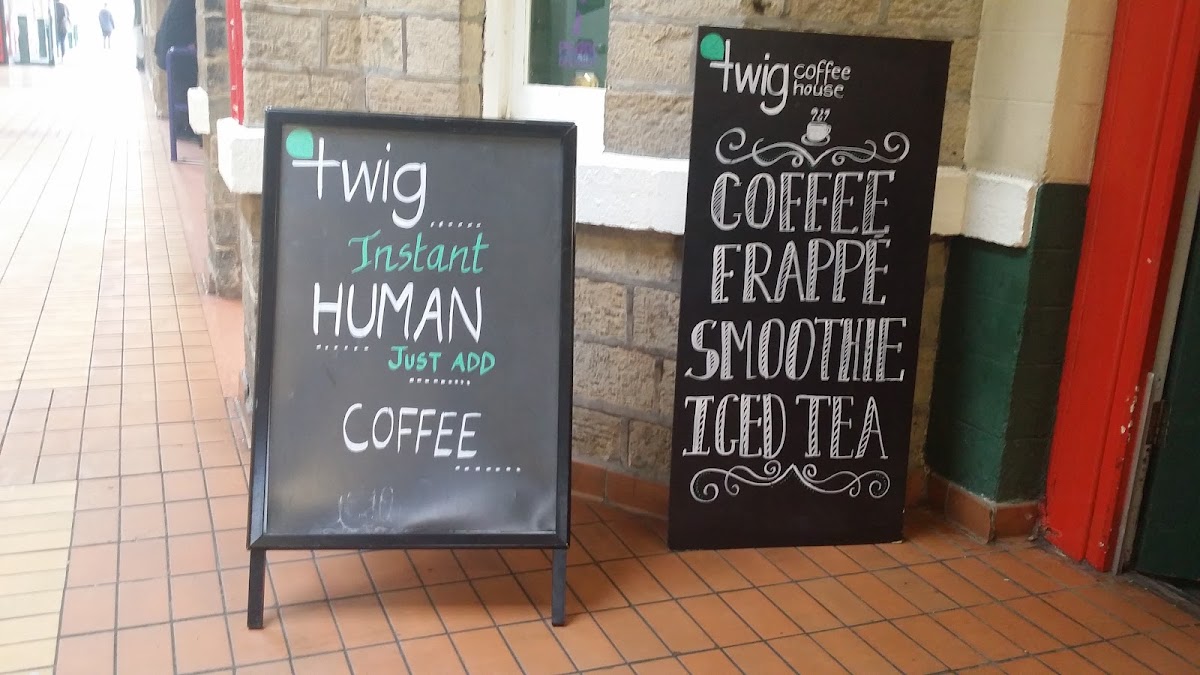 twig
Instant
HUMAN
JUST ADD
COFFEE
twig coffee house
COFFEE
FRAPPÉ
SMOOTHIE
ICED TEA